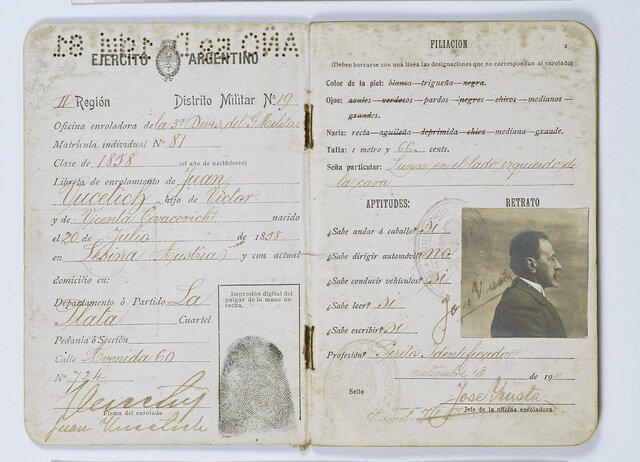 EJERCITO ARGENTINO
II Región Distrito Militar Nº 19
Oficina enroladora de la 3ª Divis. del G. Militar
Matrícula individual Nº 81
Clase de 1858 (el año de nacimiento)
Libreta de enrolamiento de Juan
Vucetich hijo de Víctor
y de Vicenta Covacevich nacido
el 20 de Julio de 1858
en Lesina Austria y con actual
domicilio en:
Departamento ó Partido La
Plata Cuartel
Pedanía ó Sección
Calle Avenida 60
Nº 724
Impresión digital del
pulgar de la mano de-
recha.
Firma del enrolado
Juan Vucetich
FILIACION
3
(Deben borrarse con una línea las designaciones que no correspondan al enrolado)
Color de la piel: blanca-trigueña-negra.
Ojos: azules-verdosos-pardos-negros-chicos-medianos-
grandes.
Nariz: recta-aguileña-deprimida-chica-mediana-grande.
Talla: 1 metro y 66 cents.
Seña particular: Lunar en el lado izquierdo de
la cara
APTITUDES:
RETRATO
¿Sabe andar á caballo? Si
¿Sabe dirigir automóvil? no
¿Sabe conducir vehículos? Si
¿Sabe leer? Si
¿Sabe escribir? Si
Profesión? Perito Identificador
Setiembre 3 de 191
Sello
Jefe de la oficina enroladora